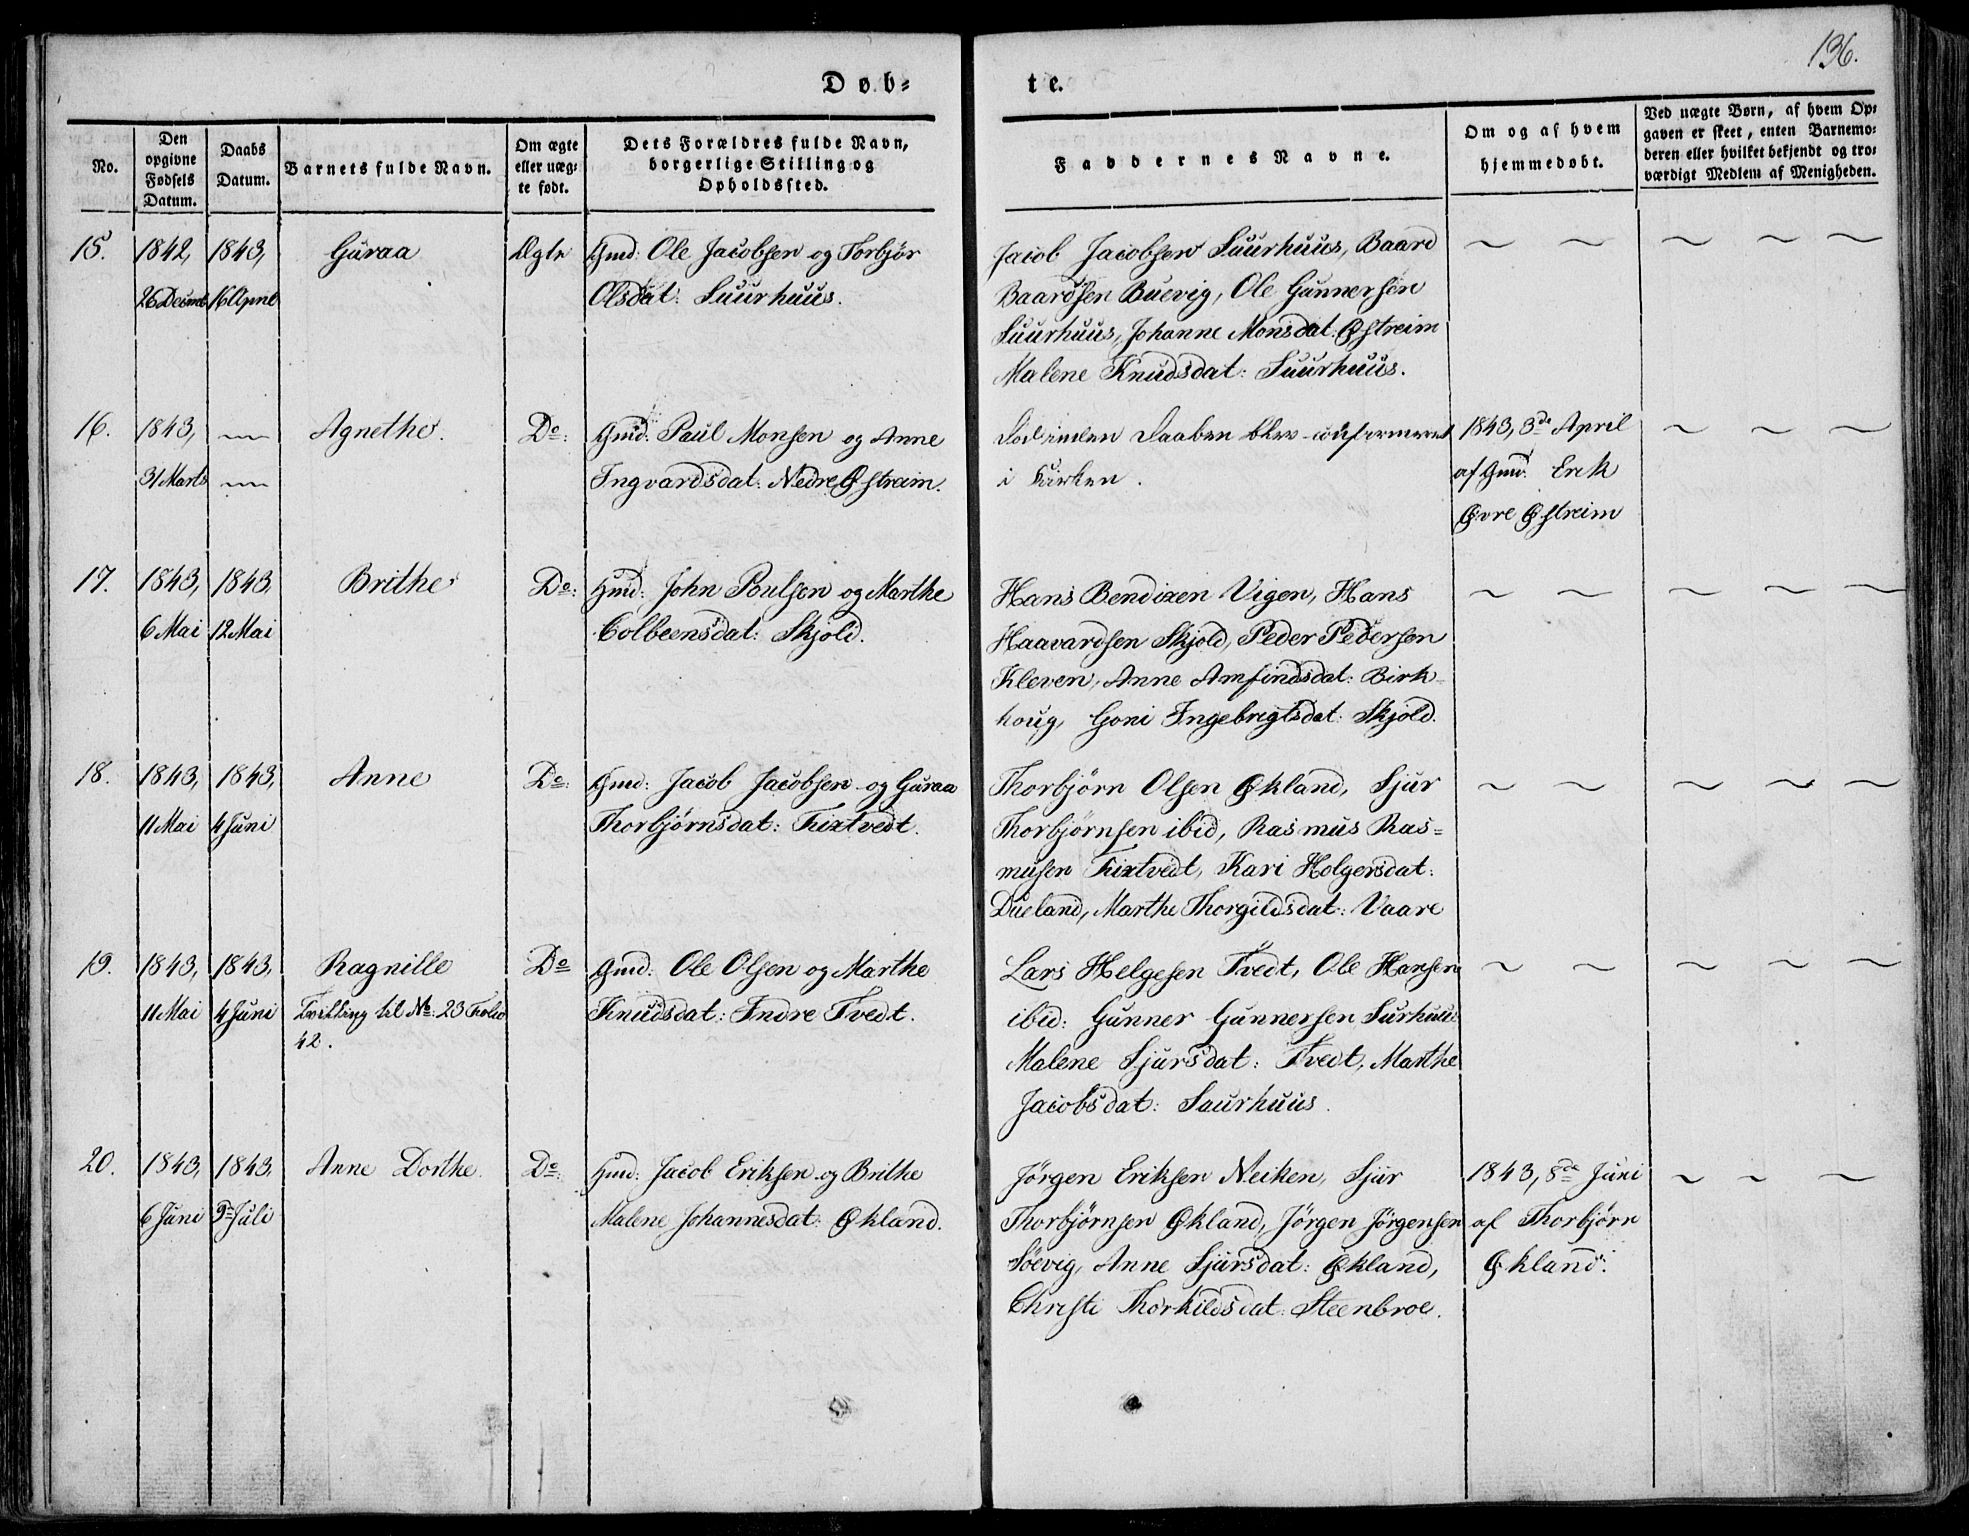 136.
Døb-
te.
No.
Den opgivne Fødsels Datum.
Daabs Datum.
Barnets fulde Navn.
Om ægte eller uæg-te født.
Dets Forældres fulde Navn, borgerlige Stilling og Opholdssted.
Faddernes Navne.
Om og af hvem hjemmedøbt.
Ved uægte Børn, af hvem Op-gaven er skeet, enten Barnemo-deren eller hvilket bekjendt og tro-værdigt Medlem af Menigheden.
15. 1842, 1843, Guraa Ægte Gmd: Ole Jacobsen og Torbjør
26 Decmb 16 April Olsdat: Suurhuus.
Jacob Jacobsen Suurhuus, Baard
Baardsen Buevig, Ole Gunnersen
Suurhuus, Johanne Monsdat: Østreim
Malene Knudsdat: Suurhuus.
16. 1843, Agnethe. Do: Gmd: Paul Monsen og Anne
31 Marts Ingvardsdat: Nedre Østreim.
Død inden Daaben blev confirmeret
i Kirken.
1843, 3de April
af Gmd. Erik
Øvre Østreim
17. 1843, 1843, Brithe Do: Hmd: John Poulsen og Marthe
6 Mai 12 Mai Colbeensdat: Skjold.
Hans Bendixen Vigen, Hans
Haavardsen Skjold, Peder Pedersen
Kleven, Anne Amfindsdat: Birk
houg, Goni Ingebrigtsdat: Skjold.
18. 1843, 1843, Anne Do: Gmd: Jacob Jacobsen og Guraa
11 Mai 4 Juni Thorbjørnsdat: Tixtvedt.
Thorbjörn Olsen Økland, Sjur
Thorbjörnsen ibid, Rasmus Ras=
musen Tixtvedt, Kari Holgersdat:
Dueland, Marthe Thorgildsdat: Vaare
19. 1843, 1843, Ragnille Do Gmd: Ole Olsen og Marthe
11 Mai 4 Juni Tvilling til No: 23 Folio Knudsdat: Indre Tvedt.
42.
Lars Helgesen Tvedt, Ole Hansen
ibid: Gunner Gunnersen Surhuus
Malene Sjursdat: Tvedt, Marthe
Jacobsdat: Saurhuus.
20. 1843, 1843, Anne Dorthe. Do: Hmd: Jacob Eriksen og Brithe
6 Juni 9 Juli Malene Johannesdat: Økland.
Jörgen Eriksen Neiken, Sjur
Thorbjörnsen Økland, Jörgen Jörgensen
Söevig, Anne Sjursdat: Økland,
Christi Thorkildsdat: Steenbroe.
1843, 8de Juni
af Thorbjörn
Økland.